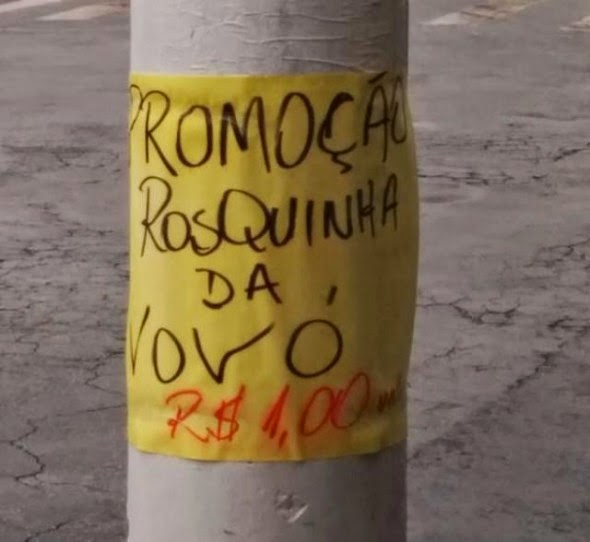 PROMOÇÃO
ROSQUINHA
DA
VOVÓ
R$ 1,00